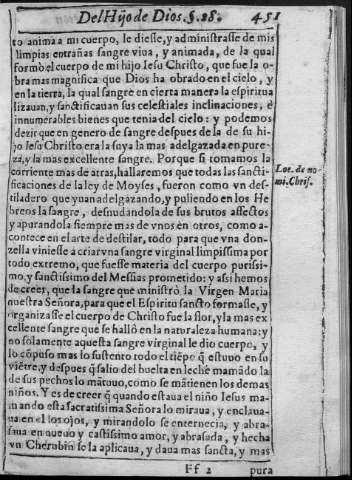 Del Hijo de Dios. §. 28. 451
to anima a mi cuerpo, le diesse, y administrasse de mis
limpias entrañas sangre viua, y animada, de la qual
formò el cuerpo de mi hijo Iesu Christo, que fue la o-
bra mas magnifica que Dios ha obrado en el cielo, y
en la tierra, la qual sangre en cierta manera la espiritua
lizauan, y sanctificauan sus celestiales inclinaciones, è
innumerables bienes que tenia del cielo: y podemos
dezir que en genero de sangre despues de la de su hi-
jo Iesu Christo era la suya la mas adelgazada en pure-
za, y la mas excellente sangre. Porque si tomamos la
corriente mas de atras, hallaremos que todas las sancti-
ficaciones de la ley de Moyses, fueron como vn des-
tiladero que yuan adelgazando, y puliendo en los He
breos la sangre, desnudandola de sus brutos affectos
y apurandola siempre mas de vnos en otros, como a-
contece en el arte de destilar, todo para que vna don-
zella viniesse a criar vna sangre virginal limpissima por
todo extremo, que fuesse materia del cuerpo purissi-
mo, y sanctissimo del Messias prometido: y assi hemos
de creer, que la sangre que ministrò la Virgen Maria
nuestra Señora, para que el Espiritu sancto formasse, y
organizasse el cuerpo de Christo fue la flor, y la mas ex
cellente sangre que se hallò en la naturaleza humana: y
no solamente aquesta sangre virginal le dio cuerpo, y
lo cõpuso mas lo sustento todo el tiẽpo q̃ estuuo en su
viẽtre, y despues q̃ salio del huelto en leche mamãdo la
de sus pechos lo mãtuuo, como se mãtienen los demas
niños. Y es de creer q̃ quando estaua el niño Iesus ma-
mando esta sacratissima Señora lo miraua, y enclaua-
ua en el los ojos, y mirandolo se enternecia, y abra-
saua en nueuo y castissimo amor, y abrasada, y hecha
vn Cherubin se la aplicaua, y daua mas sancta, y mas
Ff 2 pura
Loe. de no
mi. Chris.